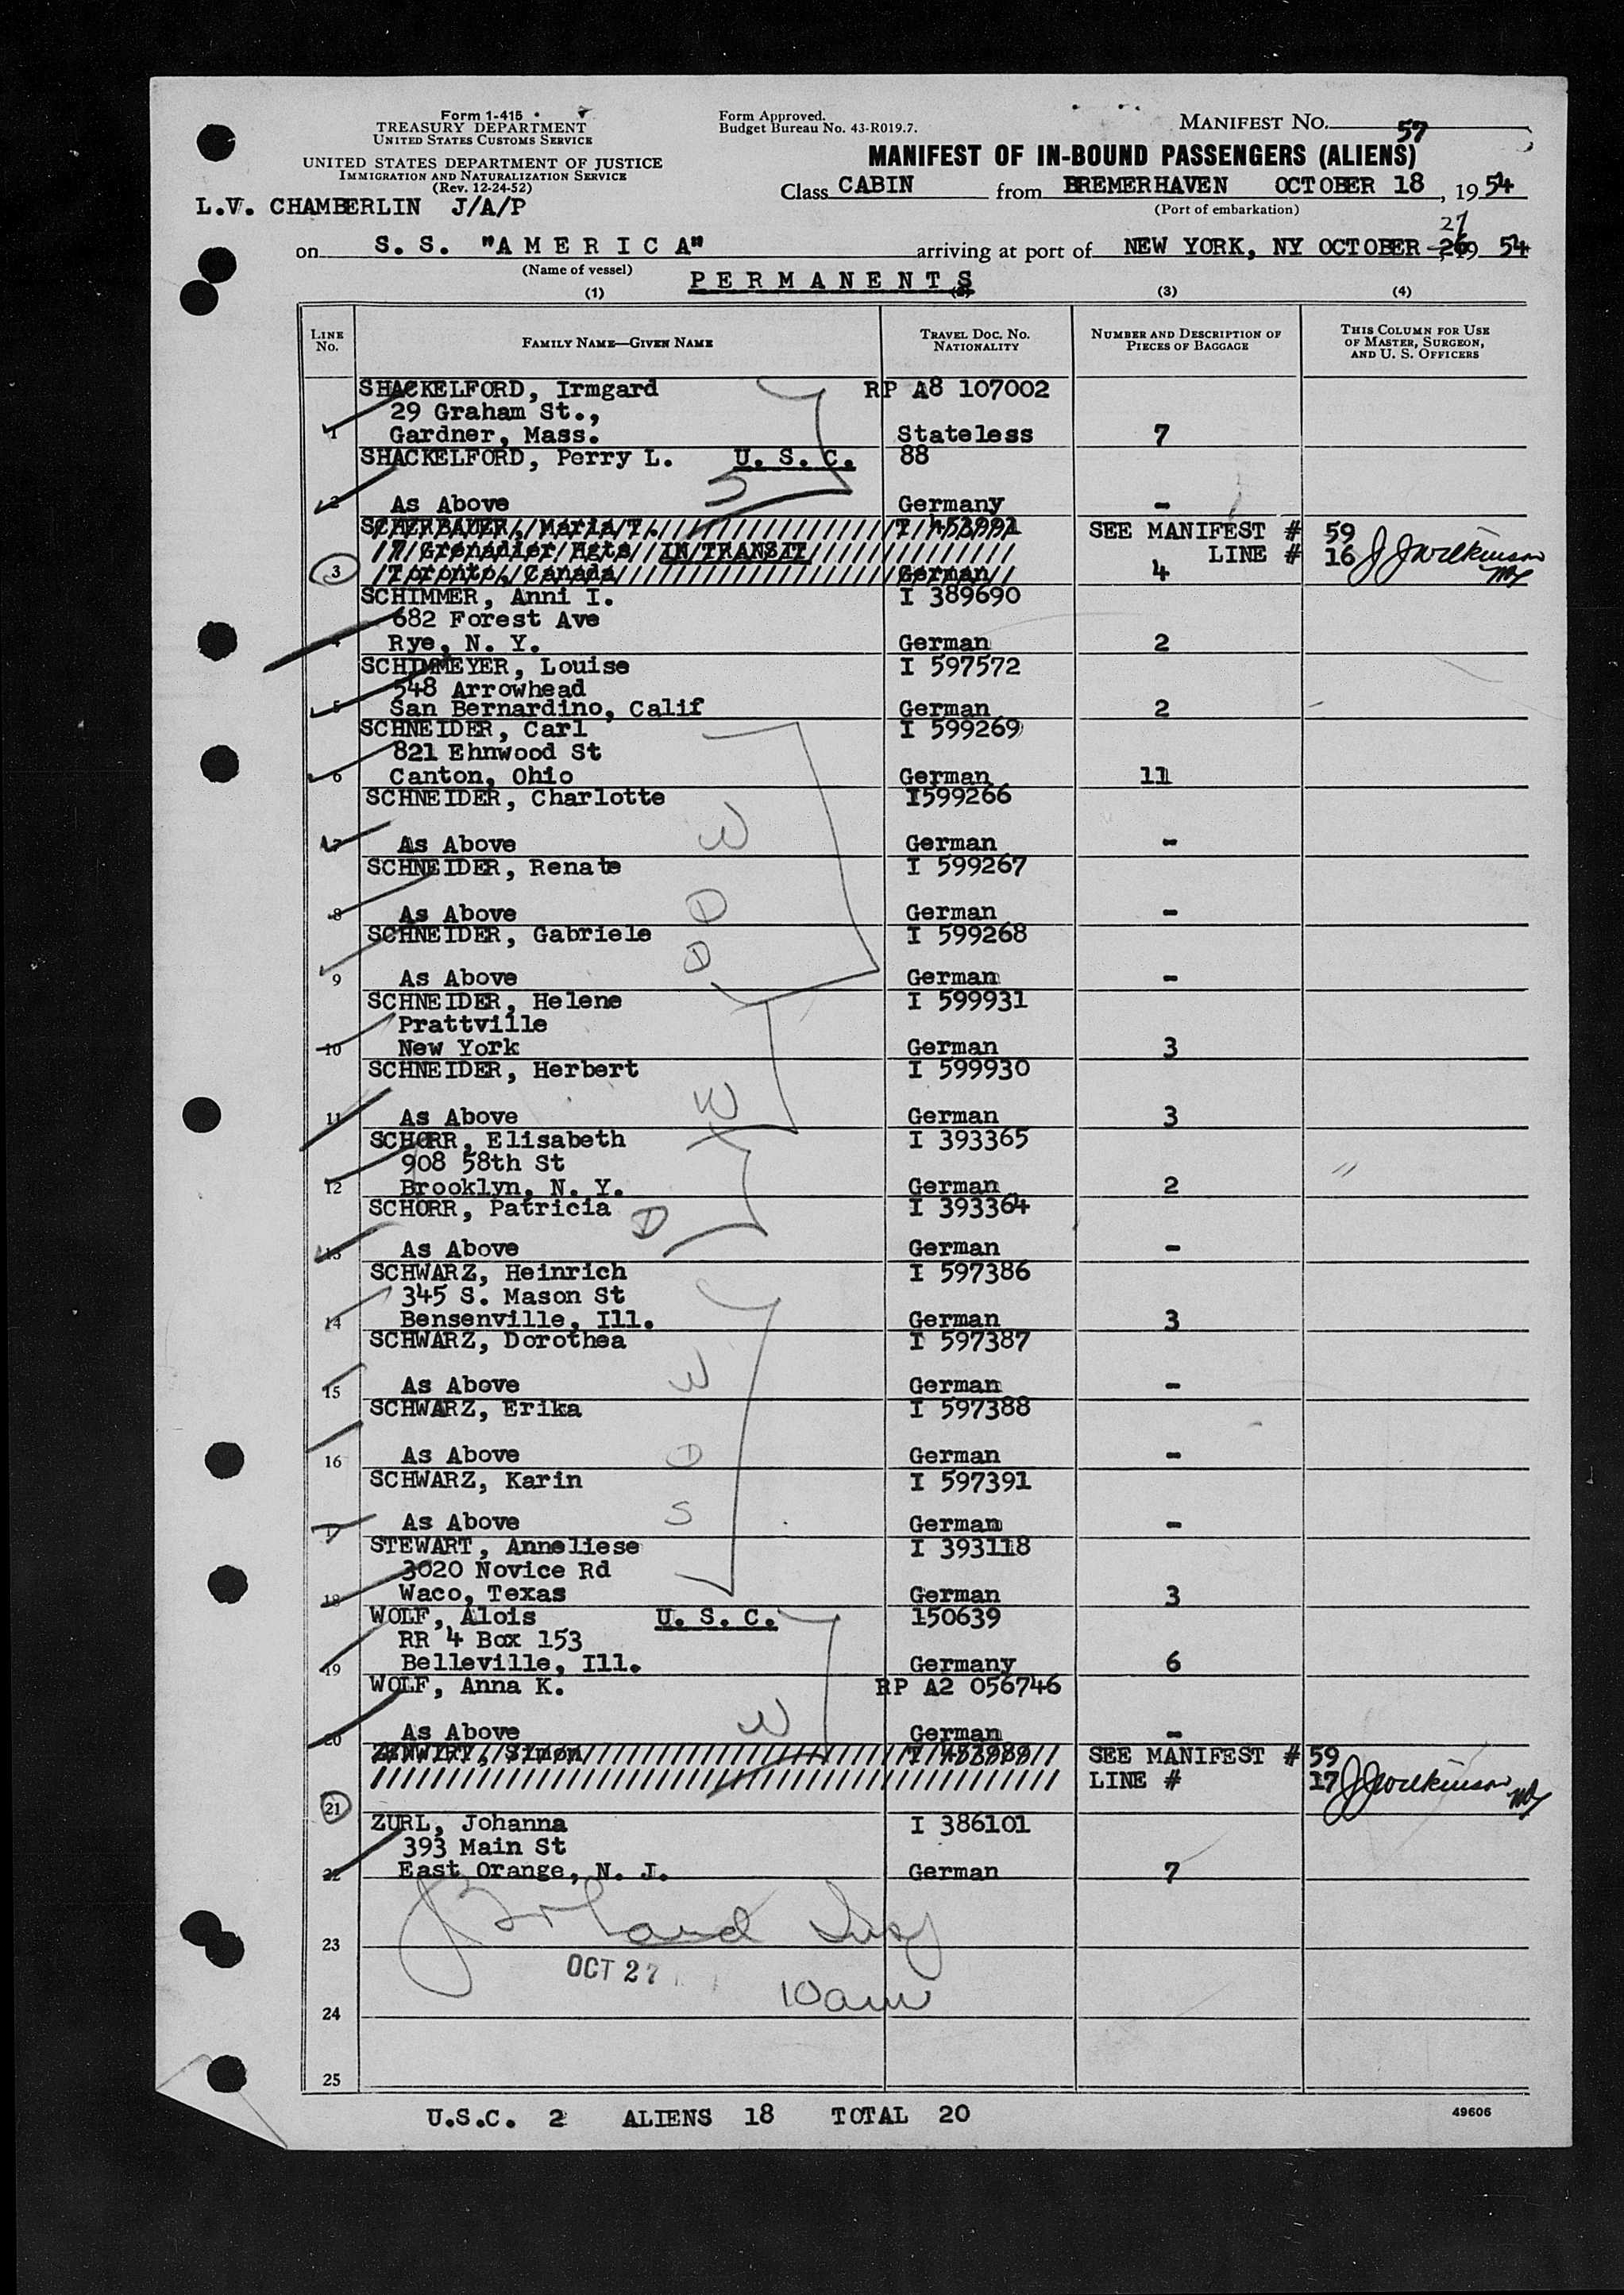 Form 1-415
TREASURY DEPARTMENT
UNITED STATES CUSTOMS SERVICE
UNITED STATES DEPARTMENT OF JUSTICE
IMMIGRATION AND NATURALIZATION SERVICE
(Rev. 12-24-52)
L.V. CHAMBERLIN J/A/P
Form Approved.
Budget Bureau No. 43-R019.7.
MANIFEST NO. 57
MANIFEST OF IN-BOUND PASSENGERS (ALIENS)
Class CABIN from BREMERHAVEN OCTOBER 18, 1954
(Port of embarkation)
27
on S. S. "A M E R I C A" arriving at port of NEW YORK, NY OCTOBER 26, 19 54
(Name of vessel)
P E R M A N E N T S
(1) (2) (3) (4)
LINE NO. FAMILY NAME—GIVEN NAME TRAVEL DOC. NO. NATIONALITY NUMBER AND DESCRIPTION OF PIECES OF BAGGAGE THIS COLUMN FOR USE OF MASTER, SURGEON, AND U. S. OFFICERS
SHACKELFORD, Irmgard RP A8 107002
29 Graham St.,
1 Gardner, Mass. Stateless 7
SHACKELFORD, Perry L. U. S. C. 88
2 As Above Germany -
SCHERBAUER, Maria T. I 453991 SEE MANIFEST # 59
7 Grenadier Hgts IN TRANSIT LINE # 16 J J Wilkinson
3 Toronto, Canada German 4
SCHIMMER, Anni I. I 389690
682 Forest Ave
4 Rye, N. Y. German 2
SCHIMMEYER, Louise I 597572
548 Arrowhead
5 San Bernardino, Calif German 2
SCHNEIDER, Carl I 599269
821 Ehnwood St
6 Canton, Ohio German 11
SCHNEIDER, Charlotte I599266
W
7 As Above German -
SCHNEIDER, Renate I 599267
8 As Above D German -
SCHNEIDER, Gabriele I 599268
D
9 As Above German -
SCHNEIDER, Helene I 599931
Prattville
10 New York German 3
SCHNEIDER, Herbert I 599930
W
11 As Above German 3
SCHORR, Elisabeth I 393365
908 58th St
12 Brooklyn, N. Y. German 2
SCHORR, Patricia D I 393364
13 As Above German -
SCHWARZ, Heinrich I 597386
345 S. Mason St
14 Bensenville, Ill. German 3
SCHWARZ, Dorothea I 597387
15 As Above W German -
SCHWARZ, Erika I 597388
16 As Above D German -
SCHWARZ, Karin I 597391
S
17 As Above German -
STEWART, Anneliese I 393118
3020 Novice Rd
18 Waco, Texas German 3
WOLF, Alois U. S. C. 150639
RR 4 Box 153
19 Belleville, Ill. Germany 6
WOLF, Anna K. RP A2 056746
20 As Above W German -
ZINWIRT, Simon I 453989 SEE MANIFEST # 59
LINE # 17 J J Wilkinson
21
ZURL, Johanna I 386101
393 Main St
22 East Orange, N. J. German 7
23
OCT 27
10 am
24
25
U.S.C. 2 ALIENS 18 TOTAL 20
49606